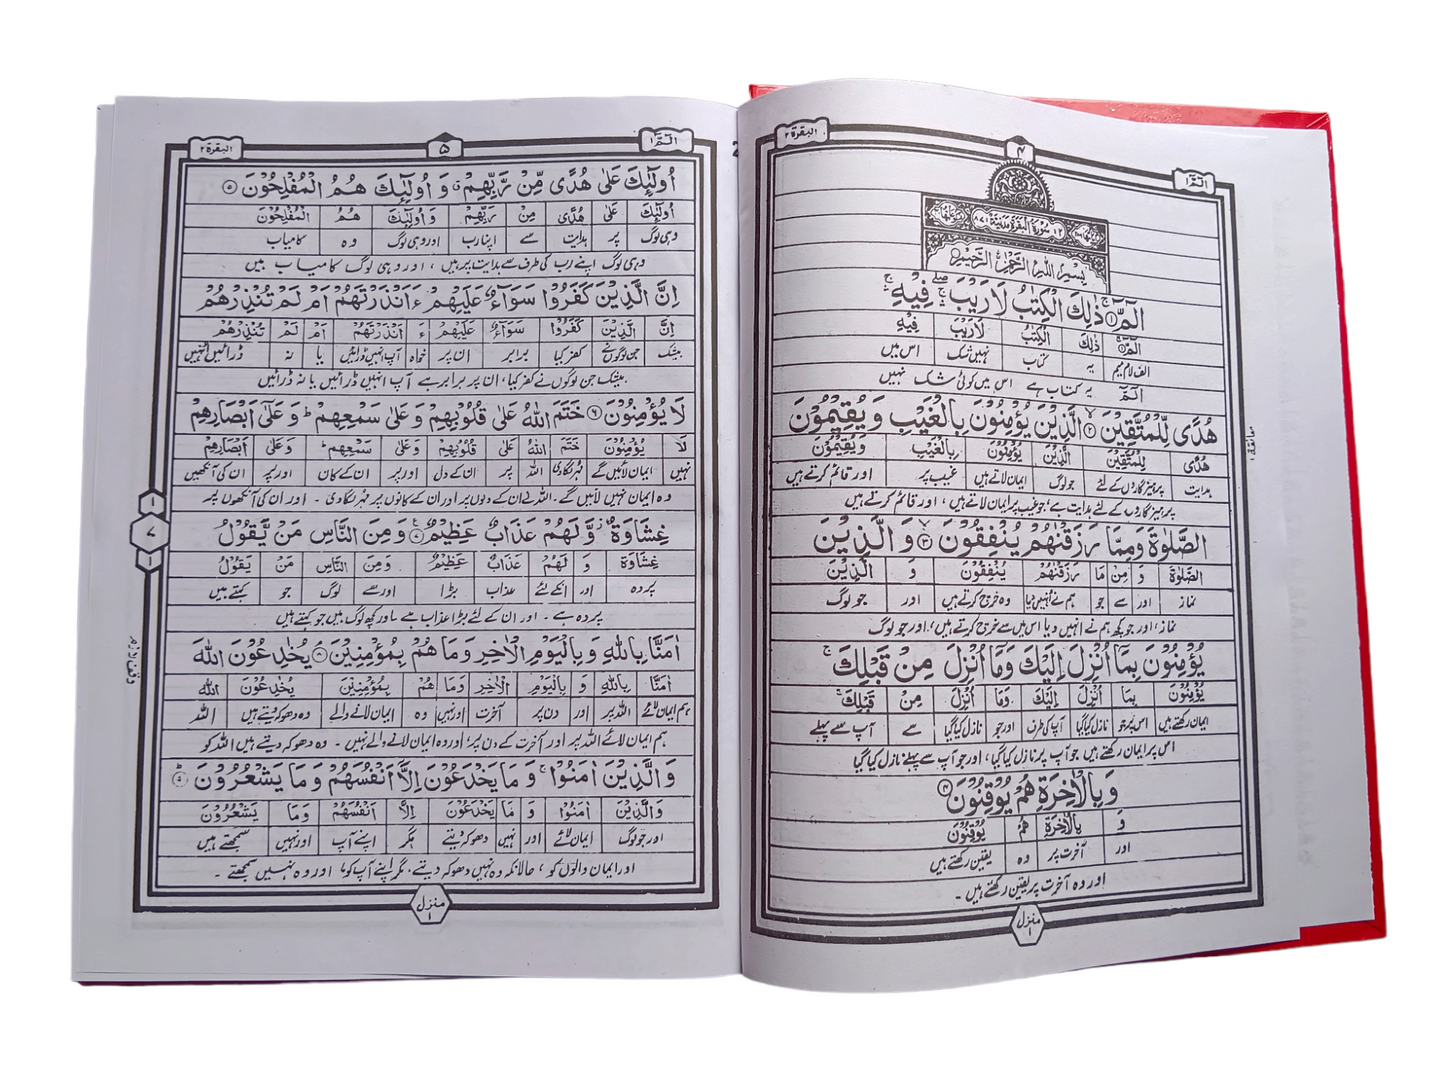 الٓمّٓ ۱
۴
البقرة ۲
سُوْرَةُ الْبَقَرَةِ مَدَنِيَّةٌ
بِسْمِ اللّٰهِ الرَّحْمٰنِ الرَّحِيْمِ
الٓمّٓ ۚ ۱ ذٰلِكَ الْكِتٰبُ لَا رَيْبَ ۛۚ فِيْهِ ۛۚ
الٓمّٓ ذٰلِكَ الْكِتٰبُ لَا رَيْبَ فِيْهِ
الف لام میم یہ کتاب نہیں شک اس میں
الٓمّٓ یہ کتاب ہے اس میں کوئی شک نہیں
هُدًى لِّلْمُتَّقِيْنَ ۙ ۲ الَّذِيْنَ يُؤْمِنُوْنَ بِالْغَيْبِ وَيُقِيْمُوْنَ
هُدًى لِّلْمُتَّقِيْنَ الَّذِيْنَ يُؤْمِنُوْنَ بِالْغَيْبِ وَيُقِيْمُوْنَ
ہدایت پرہیزگاروں کے لئے جو لوگ ایمان لاتے ہیں غیب پر اور قائم کرتے ہیں
پرہیزگاروں کے لئے ہدایت ہے، جو غیب پر ایمان لاتے ہیں، اور قائم کرتے ہیں
الصَّلٰوةَ وَمِمَّا رَزَقْنٰهُمْ يُنْفِقُوْنَ ۙ ۳ وَالَّذِيْنَ
الصَّلٰوةَ وَ مِنْ مَا رَزَقْنٰهُمْ يُنْفِقُوْنَ وَ الَّذِيْنَ
نماز اور سے جو ہم نے انہیں دیا وہ خرچ کرتے ہیں اور جو لوگ
نماز، اور جو کچھ ہم نے انہیں دیا اس میں سے خرچ کرتے ہیں، اور جو لوگ
يُؤْمِنُوْنَ بِمَآ اُنْزِلَ اِلَيْكَ وَمَآ اُنْزِلَ مِنْ قَبْلِكَ ۚ
يُؤْمِنُوْنَ بِمَا اُنْزِلَ اِلَيْكَ وَمَا اُنْزِلَ مِنْ قَبْلِكَ
ایمان رکھتے ہیں اس پر جو نازل کیا گیا آپ کی طرف اور جو نازل کیا گیا سے آپ سے پہلے
اس پر ایمان رکھتے ہیں جو آپ پر نازل کیا گیا، اور جو آپ سے پہلے نازل کیا گیا
وَبِالْاٰخِرَةِ هُمْ يُوْقِنُوْنَ ۴
وَ بِالْاٰخِرَةِ هُمْ يُوْقِنُوْنَ
اور آخرت پر وہ یقین رکھتے ہیں
اور وہ آخرت پر یقین رکھتے ہیں۔
منزل ۱
معانقة ۱
الٓمّٓ ۱
۵
البقرة ۲
اُولٰٓئِكَ عَلٰى هُدًى مِّنْ رَّبِّهِمْ ۙ وَاُولٰٓئِكَ هُمُ الْمُفْلِحُوْنَ ۵
اُولٰٓئِكَ عَلٰى هُدًى مِنْ رَبِّهِمْ وَاُولٰٓئِكَ هُمُ الْمُفْلِحُوْنَ
وہی لوگ پر ہدایت سے اپنا رب اور وہی لوگ وہ کامیاب
وہی لوگ اپنے رب کی طرف سے ہدایت پر ہیں، اور وہی لوگ کامیاب ہیں
اِنَّ الَّذِيْنَ كَفَرُوْا سَوَآءٌ عَلَيْهِمْ ءَاَنْذَرْتَهُمْ اَمْ لَمْ تُنْذِرْهُمْ
اِنَّ الَّذِيْنَ كَفَرُوْا سَوَآءٌ عَلَيْهِمْ ءَ اَنْذَرْتَهُمْ اَمْ لَمْ تُنْذِرْهُمْ
بیشک جن لوگوں نے کفر کیا برابر ان پر خواہ آپ انہیں ڈرائیں یا نہ ڈرائیں انہیں
بیشک جن لوگوں نے کفر کیا، ان پر برابر ہے آپ انہیں ڈرائیں یا نہ ڈرائیں
لَا يُؤْمِنُوْنَ ۶ خَتَمَ اللّٰهُ عَلٰى قُلُوْبِهِمْ وَعَلٰى سَمْعِهِمْ ؕ وَعَلٰٓى اَبْصَارِهِمْ
لَا يُؤْمِنُوْنَ خَتَمَ اللّٰهُ عَلٰى قُلُوْبِهِمْ وَعَلٰى سَمْعِهِمْ وَعَلٰى اَبْصَارِهِمْ
نہیں ایمان لائیں گے مہر لگا دی اللہ پر ان کے دل اور پر ان کے کان اور پر ان کی آنکھیں
وہ ایمان نہیں لائیں گے۔ اللہ نے ان کے دلوں پر اور ان کے کانوں پر مہر لگا دی۔ اور ان کی آنکھوں پر
غِشَاوَةٌ ؗ وَّلَهُمْ عَذَابٌ عَظِيْمٌ ۷ وَمِنَ النَّاسِ مَنْ يَّقُوْلُ
غِشَاوَةٌ وَ لَهُمْ عَذَابٌ عَظِيْمٌ وَمِنَ النَّاسِ مَنْ يَقُوْلُ
پردہ اور انکے لئے عذاب بڑا اور سے لوگ جو کہتے ہیں
پردہ ہے۔ اور ان کے لئے بڑا عذاب ہے۔ اور کچھ لوگ ہیں جو کہتے ہیں
اٰمَنَّا بِاللّٰهِ وَبِالْيَوْمِ الْاٰخِرِ وَمَا هُمْ بِمُؤْمِنِيْنَ ۘ ۸ يُخٰدِعُوْنَ اللّٰهَ
اٰمَنَّا بِاللّٰهِ وَ بِالْيَوْمِ الْاٰخِرِ وَمَا هُمْ بِمُؤْمِنِيْنَ يُخٰدِعُوْنَ اللّٰهَ
ہم ایمان لائے اللہ پر اور دن پر آخرت اور نہیں وہ ایمان لانے والے وہ دھوکہ دیتے ہیں اللہ
ہم ایمان لائے اللہ پر اور آخرت کے دن پر، اور وہ ایمان لانے والے نہیں۔ وہ دھوکہ دیتے ہیں اللہ کو
وَالَّذِيْنَ اٰمَنُوْا ۚ وَمَا يَخْدَعُوْنَ اِلَّآ اَنْفُسَهُمْ وَمَا يَشْعُرُوْنَ ؕ ۹
وَالَّذِيْنَ اٰمَنُوْا وَ مَا يَخْدَعُوْنَ اِلَّا اَنْفُسَهُمْ وَمَا يَشْعُرُوْنَ
اور جو لوگ ایمان لائے اور نہیں دھوکہ دیتے مگر اپنے آپ اور نہیں سمجھتے ہیں
اور ایمان والوں کو، حالانکہ وہ نہیں دھوکہ دیتے، مگر اپنے آپ کو، اور وہ نہیں سمجھتے۔
منزل ۱
۱
۷
۱
وقف لازم